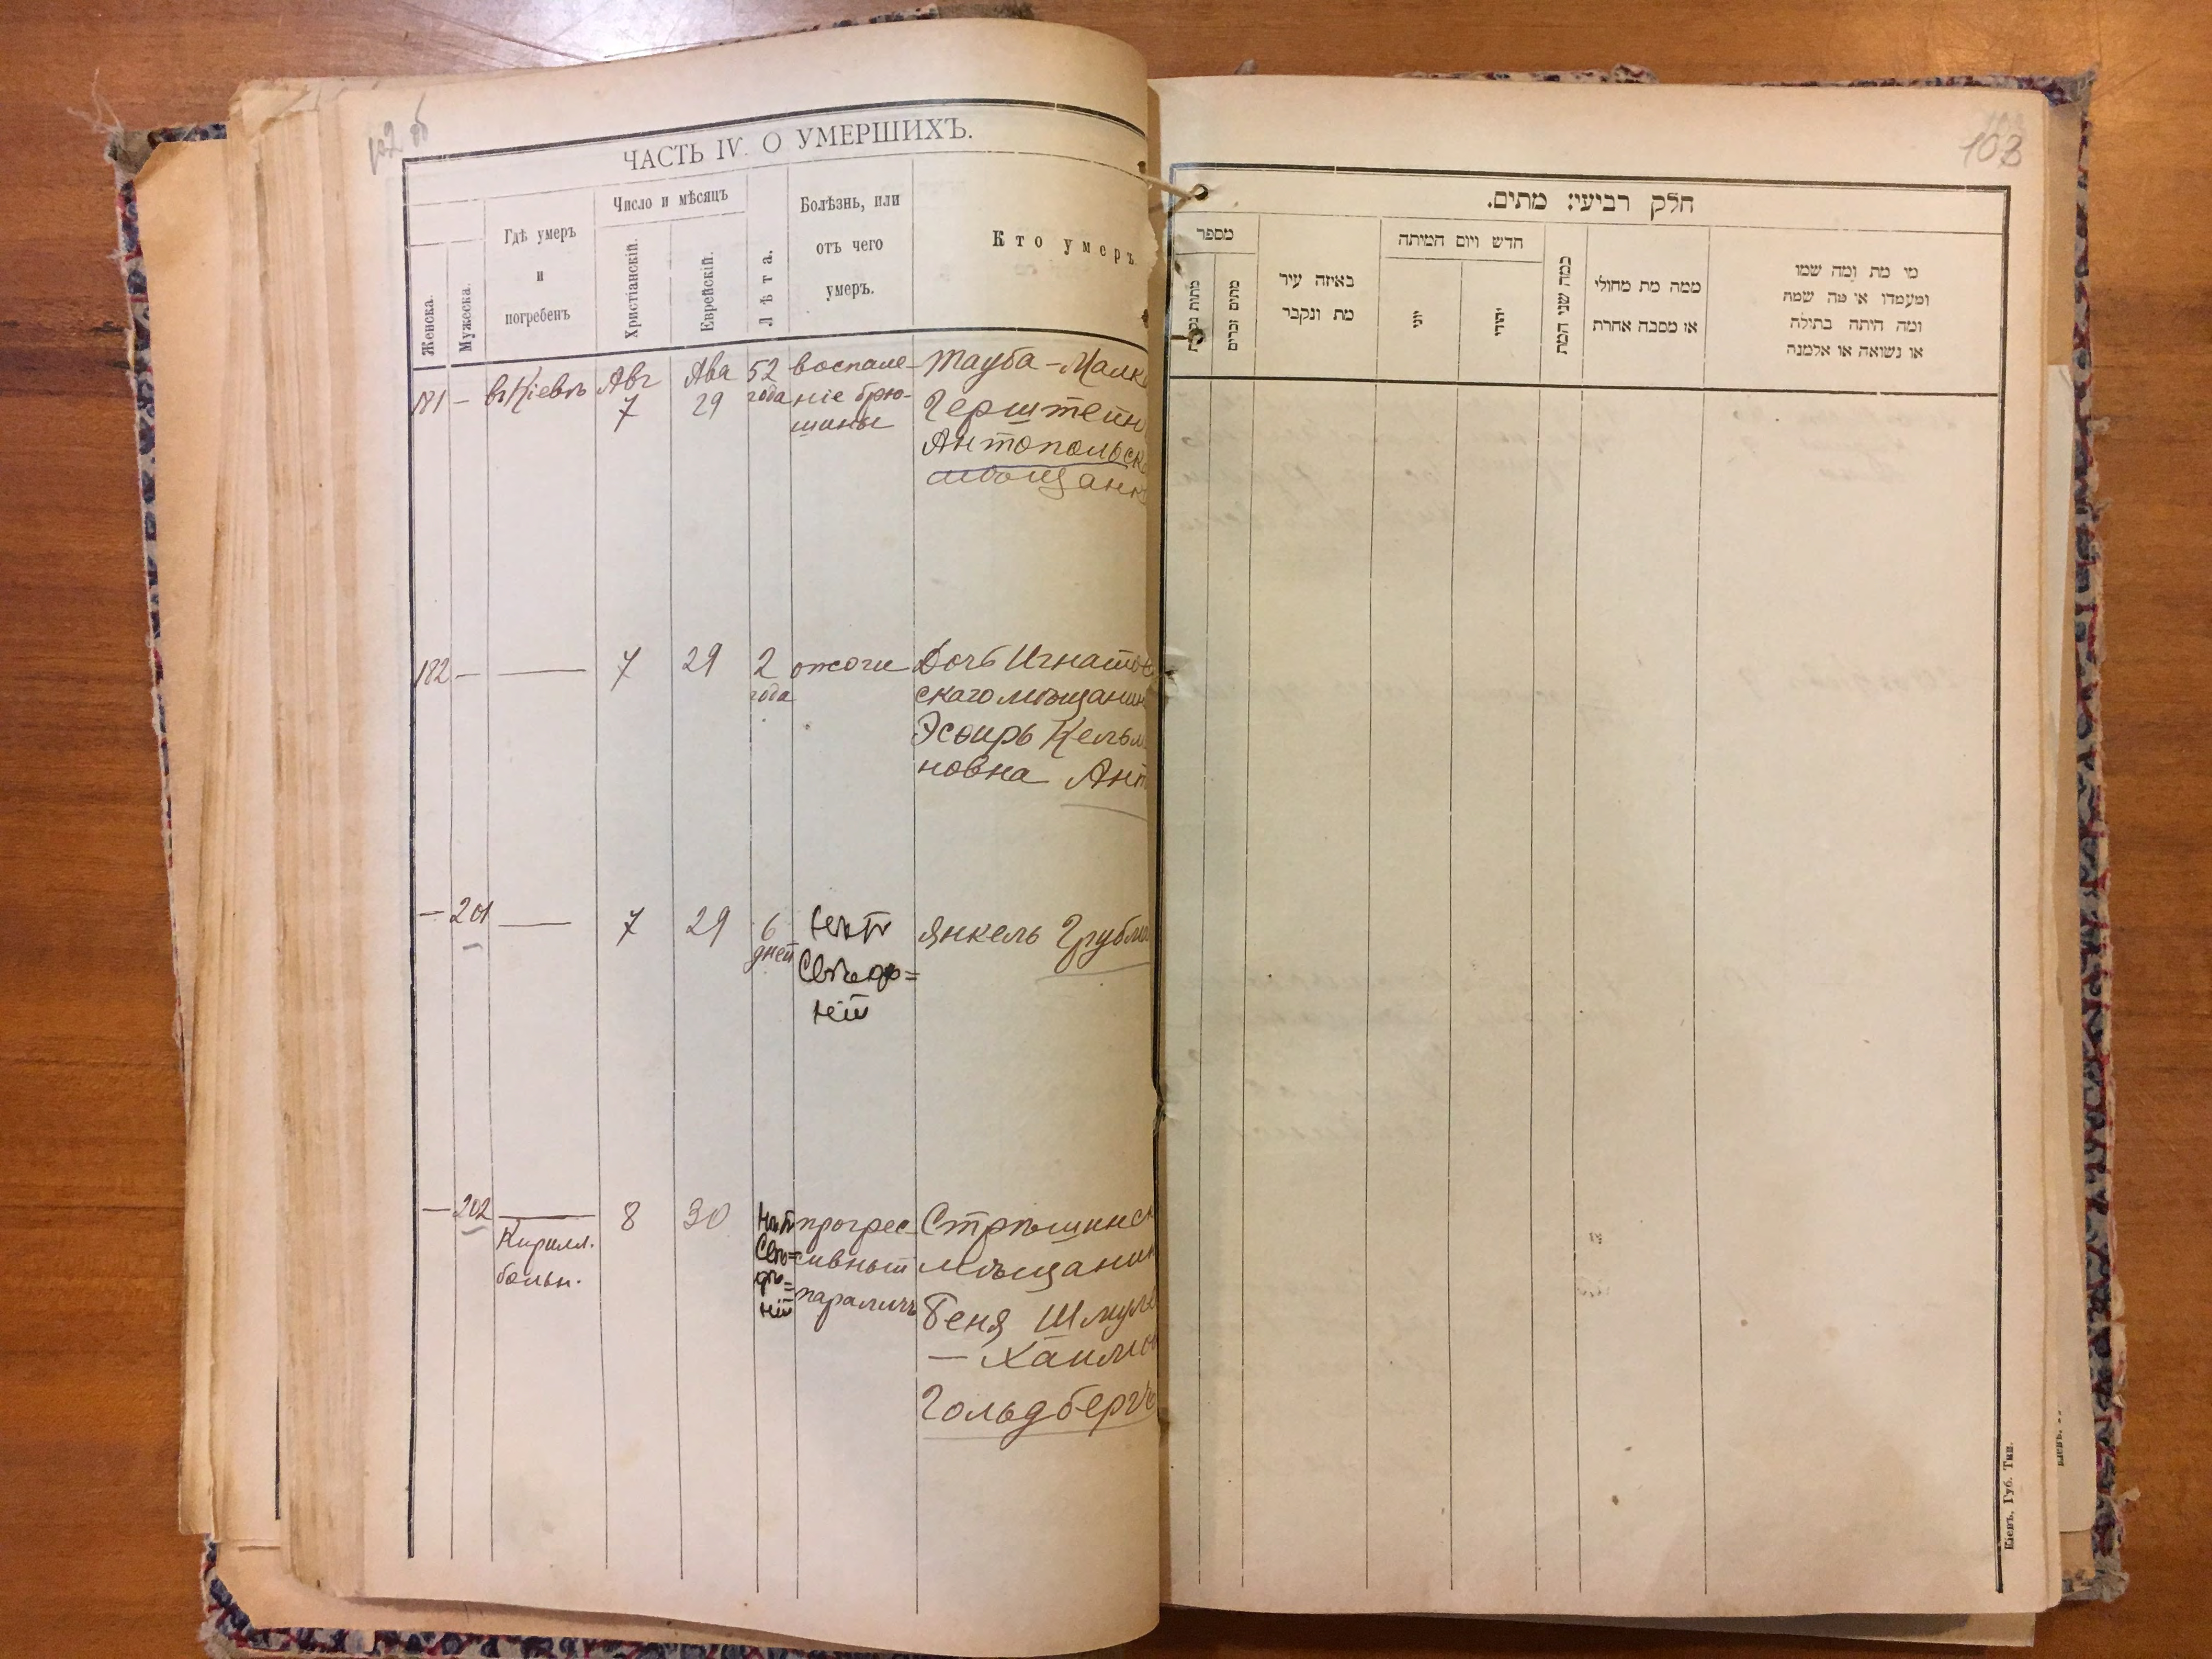 102 об
ЧАСТЬ IV. О УМЕРШИХЪ.
Женска.
Мужеска.
Гдѣ умеръ
и
погребенъ
Число и мѣсяцъ
Христіанскій.
Еврейскій.
Лѣта.
Болѣзнь, или
отъ чего
умеръ.
Кто умеръ
181 — въ Кіевѣ Авг 7 Ава 29 52 года
воспале-
ніе брю-
шины
Тауба-Малк
Герштейн
Антопольск
мѣщанк
182 — — 7 29 2 года ожоги
Дочь Игнатов
скаго мѣщанин
Эсѳирь Кельм
новна Ант
— 201 — 7 29 6 дней
нѣтъ
Свѣдѣ=
ній
Янкель Грубли
— 202 — 8 30
Кирилл.
больн.
нѣтъ
Свѣ=
дѣ=
ній
прогрес-
сивный
параличъ
Стрѣшинск
мѣщанин
Беня Шмуль
— Хаимов
Гольдбергъ
103
חלק רביעי: מתים.
מספר
מתות נקבות
מתים זכרים
באיזה עיר
מת ונקבר
חדש ויום המיתה
יוני
יהודי
כמה שני המת
ממה מת מחולי
או מסבה אחרת
מי מת ומה שמו
ומעמדו או מה שמה
ומה היתה בתולה
או נשואה או אלמנה
Кіевъ, Губ. Тип.